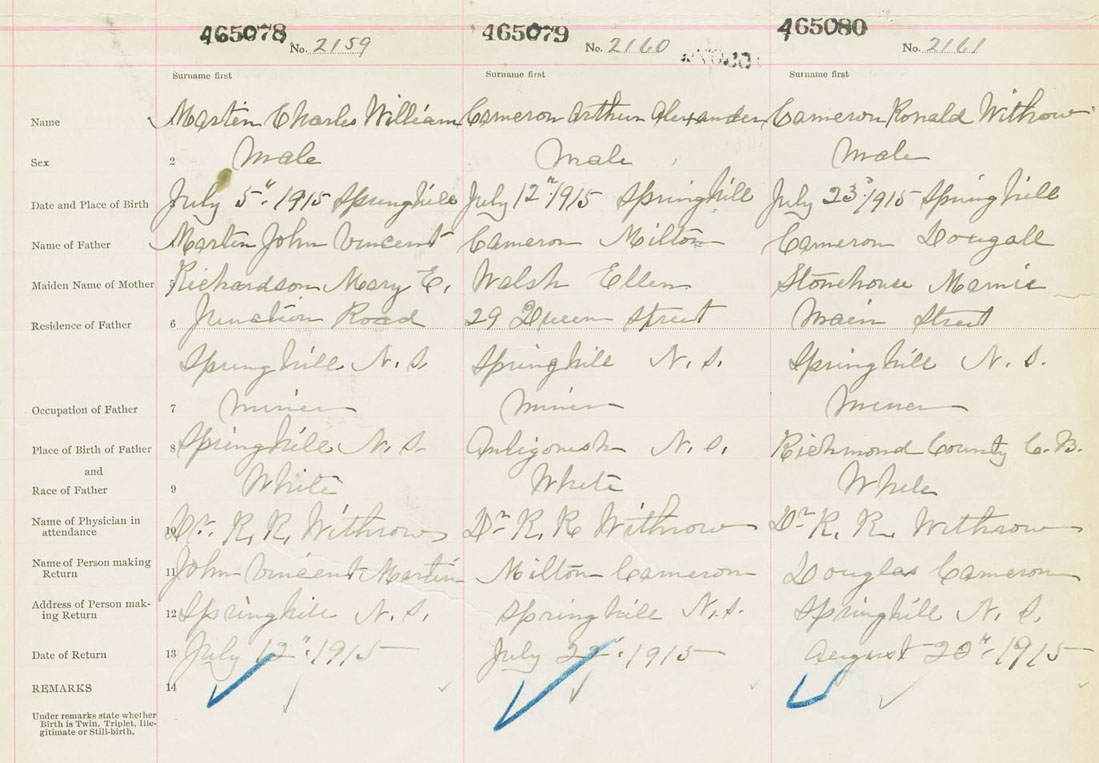 465078 No. 2159 465079 No. 2160 465080 No. 2161
Surname first Surname first Surname first
Name Martin Charles William Cameron Arthur Alexander Cameron Ronald Withrow
Sex 2 Male Male Male
Date and Place of Birth July 5" 1915 Springhill July 12" 1915 Springhill July 23" 1915 Springhill
Name of Father Martin John Vincent Cameron Milton Cameron Dougall
Maiden Name of Mother 5 Richardson Mary E. Walsh Ellen Stonehouse Mamie
Residence of Father 6 Junction Road 29 Queen Street Main Street
Springhill N.S. Springhill N.S. Springhill N.S.
Occupation of Father 7 Miner Miner Miner
Place of Birth of Father 8 Springhill N.S. Antigonish N.S. Richmond County C.B.
and
Race of Father 9 White White White
Name of Physician in attendance 10 Dr. R. R. Withrow Dr R. R Withrow Dr R. R. Withrow
Name of Person making Return 11 John Vincent Martin Milton Cameron Douglas Cameron
Address of Person mak-ing Return 12 Springhill N.S. Springhill N.S. Springhill N.S.
Date of Return 13 July 12" 1915 July 22" 1915 August 20" 1915
REMARKS 14
Under remarks state whether
Birth is Twin, Triplet, Ille-
gitimate or Still-birth.